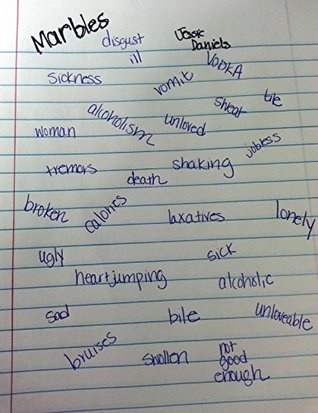 Marbles
disgust
Jessie Daniels
ill
VODKA
Sickness
vomit
sweat
lie
alcoholism
unloved
woman
jobless
tremors
shaking
death
broken
calories
laxatives
lonely
ugly
sick
heartjumping
alcoholic
sad
bile
unloveable
bruises
swollen
not
good
enough